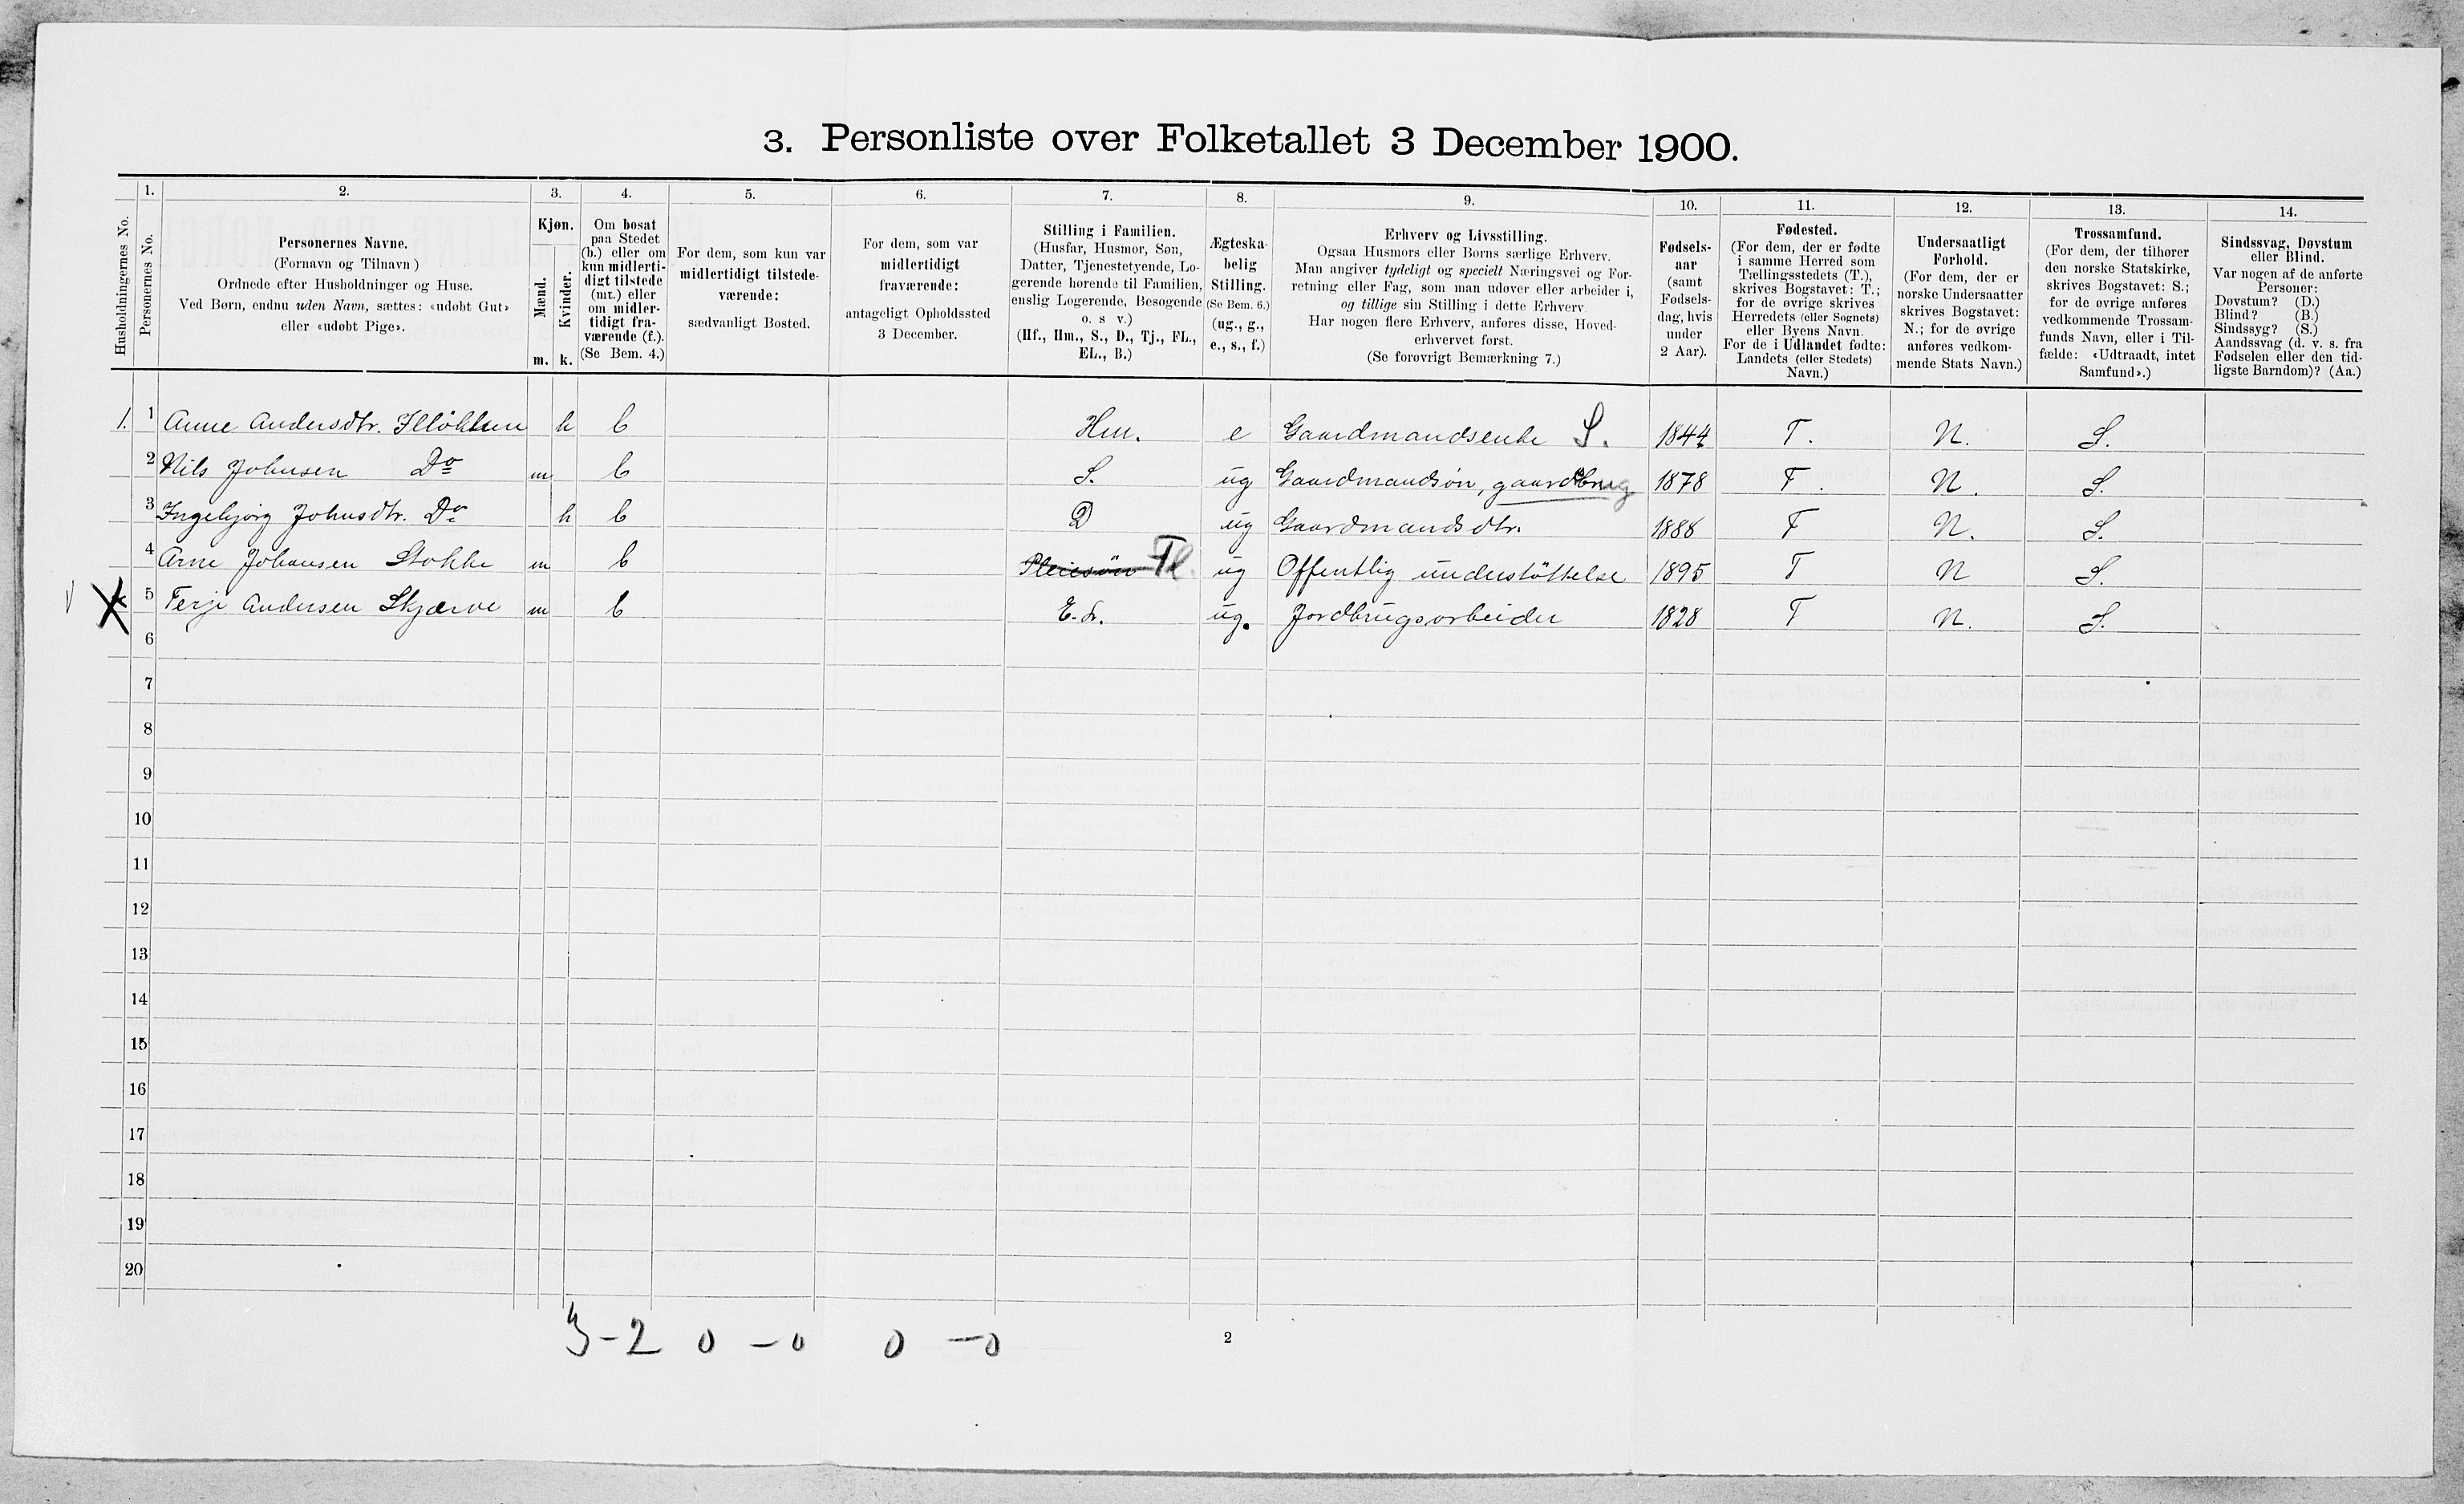 3. Personliste over Folketallet 3 December 1900.
Husholdningernes No.
1.
Personernes No.
2.
Personernes Navne.
(Fornavn og Tilnavn )
Ordnede efter Husholdninger og Huse.
Ved Børn, endnu uden Navn, sættes: «udøbt Gut»
eller «udøbt Pige».
3.
Kjøn.
Mænd.
m.
Kvinder.
k.
4.
Om bosat
paa Stedet
(b.) eller om
kun midlerti-
digt tilstede
(mt.) eller
om midler-
tidigt fra-
værende (f.).
(Se Bem. 4.)
5.
For dem, som kun var
midlertidigt tilstede-
værende:
sædvanligt Bosted.
6.
For dem, som var
midlertidigt
fraværende:
antageligt Opholdssted
3 December.
7.
Stilling i Familien.
(Husfar, Husmor, Søn,
Datter, Tjenestetyende, Lo-
gerende hørende til Familien,
enslig Logerende, Besøgende
o. s v.)
(Hf., Hm., S., D., Tj., FL.,
EL., B.)
8.
Ægteska-
belig
Stilling.
(Se Bem. 6.)
(ug., g.,
e., s., f.)
9.
Erhverv og Livsstilling.
Ogsaa Husmors eller Børns særlige Erhverv.
Man angiver tydeligt og specielt Næringsvei og For-
retning eller Fag, som man udøver eller arbeider i,
og tillige sin Stilling i dette Erhverv.
Har nogen flere Erhverv, anføres disse, Hoved-
erhvervet først.
(Se forøvrigt Bemærkning 7.)
10.
Fødsels-
aar
(samt
Fødsels-
dag, hvis
under
2 Aar).
11.
Fødested.
(For dem, der er fødte
i samme Herred som
Tællingsstedets (T.),
skrives Bogstavet: T.;
for de øvrige skrives
Herredets (eller Sognets)
eller Byens Navn.
For de i Udlandet fødte:
Landets (eller Stedets)
Navn.)
12.
Undersaatligt
Forhold.
(For dem, der er
norske Undersaatter
skrives Bogstavet:
N.; for de øvrige
anføres vedkom-
mende Stats Navn.)
13.
Trossamfund.
(For dem, der tilhører
den norske Statskirke,
skrives Bogstavet: S.;
for de øvrige anføres
vedkommende Trossam-
funds Navn, eller i Til-
fælde: «Udtraadt, intet
Samfund».)
14.
Sindssvag, Døvstum
eller Blind.
Var nogen af de anførte
Personer:
Døvstum? (D.)
Blind? (B.)
Sindssyg? (S.)
Aandssvag (d. v. s. fra
Fødselen eller den tid-
ligste Barndom)? (Aa.)
1. 1 Anne Andersdtr. k b Hm. e Gaardmandsenke S. 1844 T. N. S.
2 Nils Johnsen Do m b S. ug Gaardmandsøn, gaardbrug 1878 T. N. S.
3 Ingebjørg Johnsdtr. Do k b D ug Gaardmandsdtr. 1888 T N. S.
4 Arne Johansen Stokke m b Pleiesøn Fl. ug Offentlig understøttelse 1895 T N S.
5 Terje Andersen Skjærve m b E.L. ug. Jordbrugsarbeider 1828 T N. S.
6
7
8
9
10
11
12
13
14
15
16
17
18
19
20
3 - 2 0 - 0 0 - 0
2